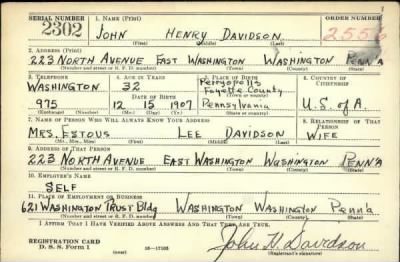 SERIAL NUMBER 1. NAME (Print) ORDER NUMBER
2302 JOHN HENRY DAVIDSON 2555
(First) (Middle) (Last)
2. ADDRESS (Print)
223 NORTH AVENUE EAST WASHINGTON WASHINGTON PENN'A
(Number and street or R. F. D. number) (Town) (County) (State)
3. TELEPHONE 4. AGE IN YEARS 5. PLACE OF BIRTH 6. COUNTRY OF CITIZENSHIP
WASHINGTON 32 Perryopolis
Fayette County
(Exchange) DATE OF BIRTH (Town or county)
975 12 15 1907 Pennsylvania U.S. of A.
(Number) (Mo.) (Day) (Yr.) (State or country)
7. NAME OF PERSON WHO WILL ALWAYS KNOW YOUR ADDRESS 8. RELATIONSHIP OF THAT PERSON
MRS. ESTOUS LEE DAVIDSON WIFE
(Mr., Mrs., Miss) (First) (Middle) (Last)
9. ADDRESS OF THAT PERSON
223 NORTH AVENUE EAST WASHINGTON WASHINGTON PENN'A
(Number and street or R. F. D. number) (Town) (County) (State)
10. EMPLOYER'S NAME
SELF
11. PLACE OF EMPLOYMENT OR BUSINESS
621 WASHINGTON TRUST Bldg WASHINGTON WASHINGTON PENN'A
(Number and street or R. F. D. number) (Town) (County) (State)
I AFFIRM THAT I HAVE VERIFIED ABOVE ANSWERS AND THAT THEY ARE TRUE.
REGISTRATION CARD
D. S. S. Form 1 (over) 16—17105 John H. Davidson
(Registrant's signature)